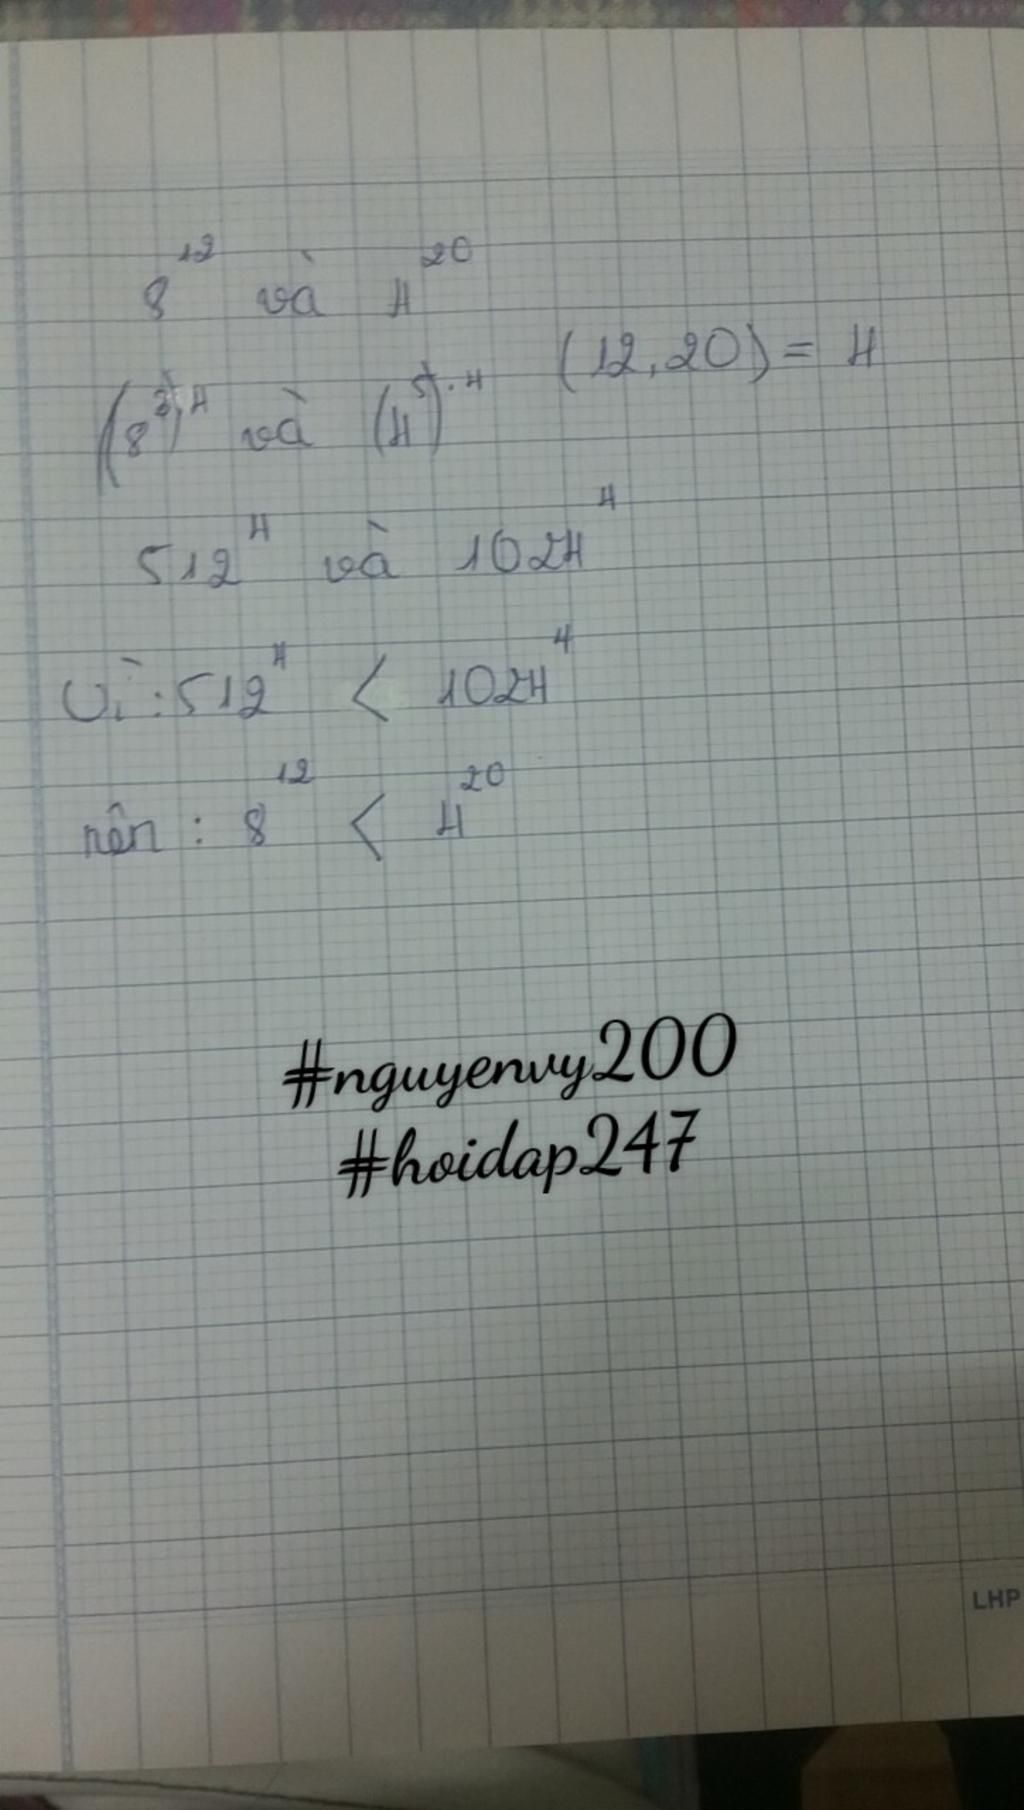 8¹² và 4²⁰
(12,20) = 4
(8³)⁴ và (4⁵)·⁴
512⁴ và 1024⁴
Vì : 512⁴ < 1024⁴
nên : 8¹² < 4²⁰
#nguyenvy200
#hoidap247
LHP